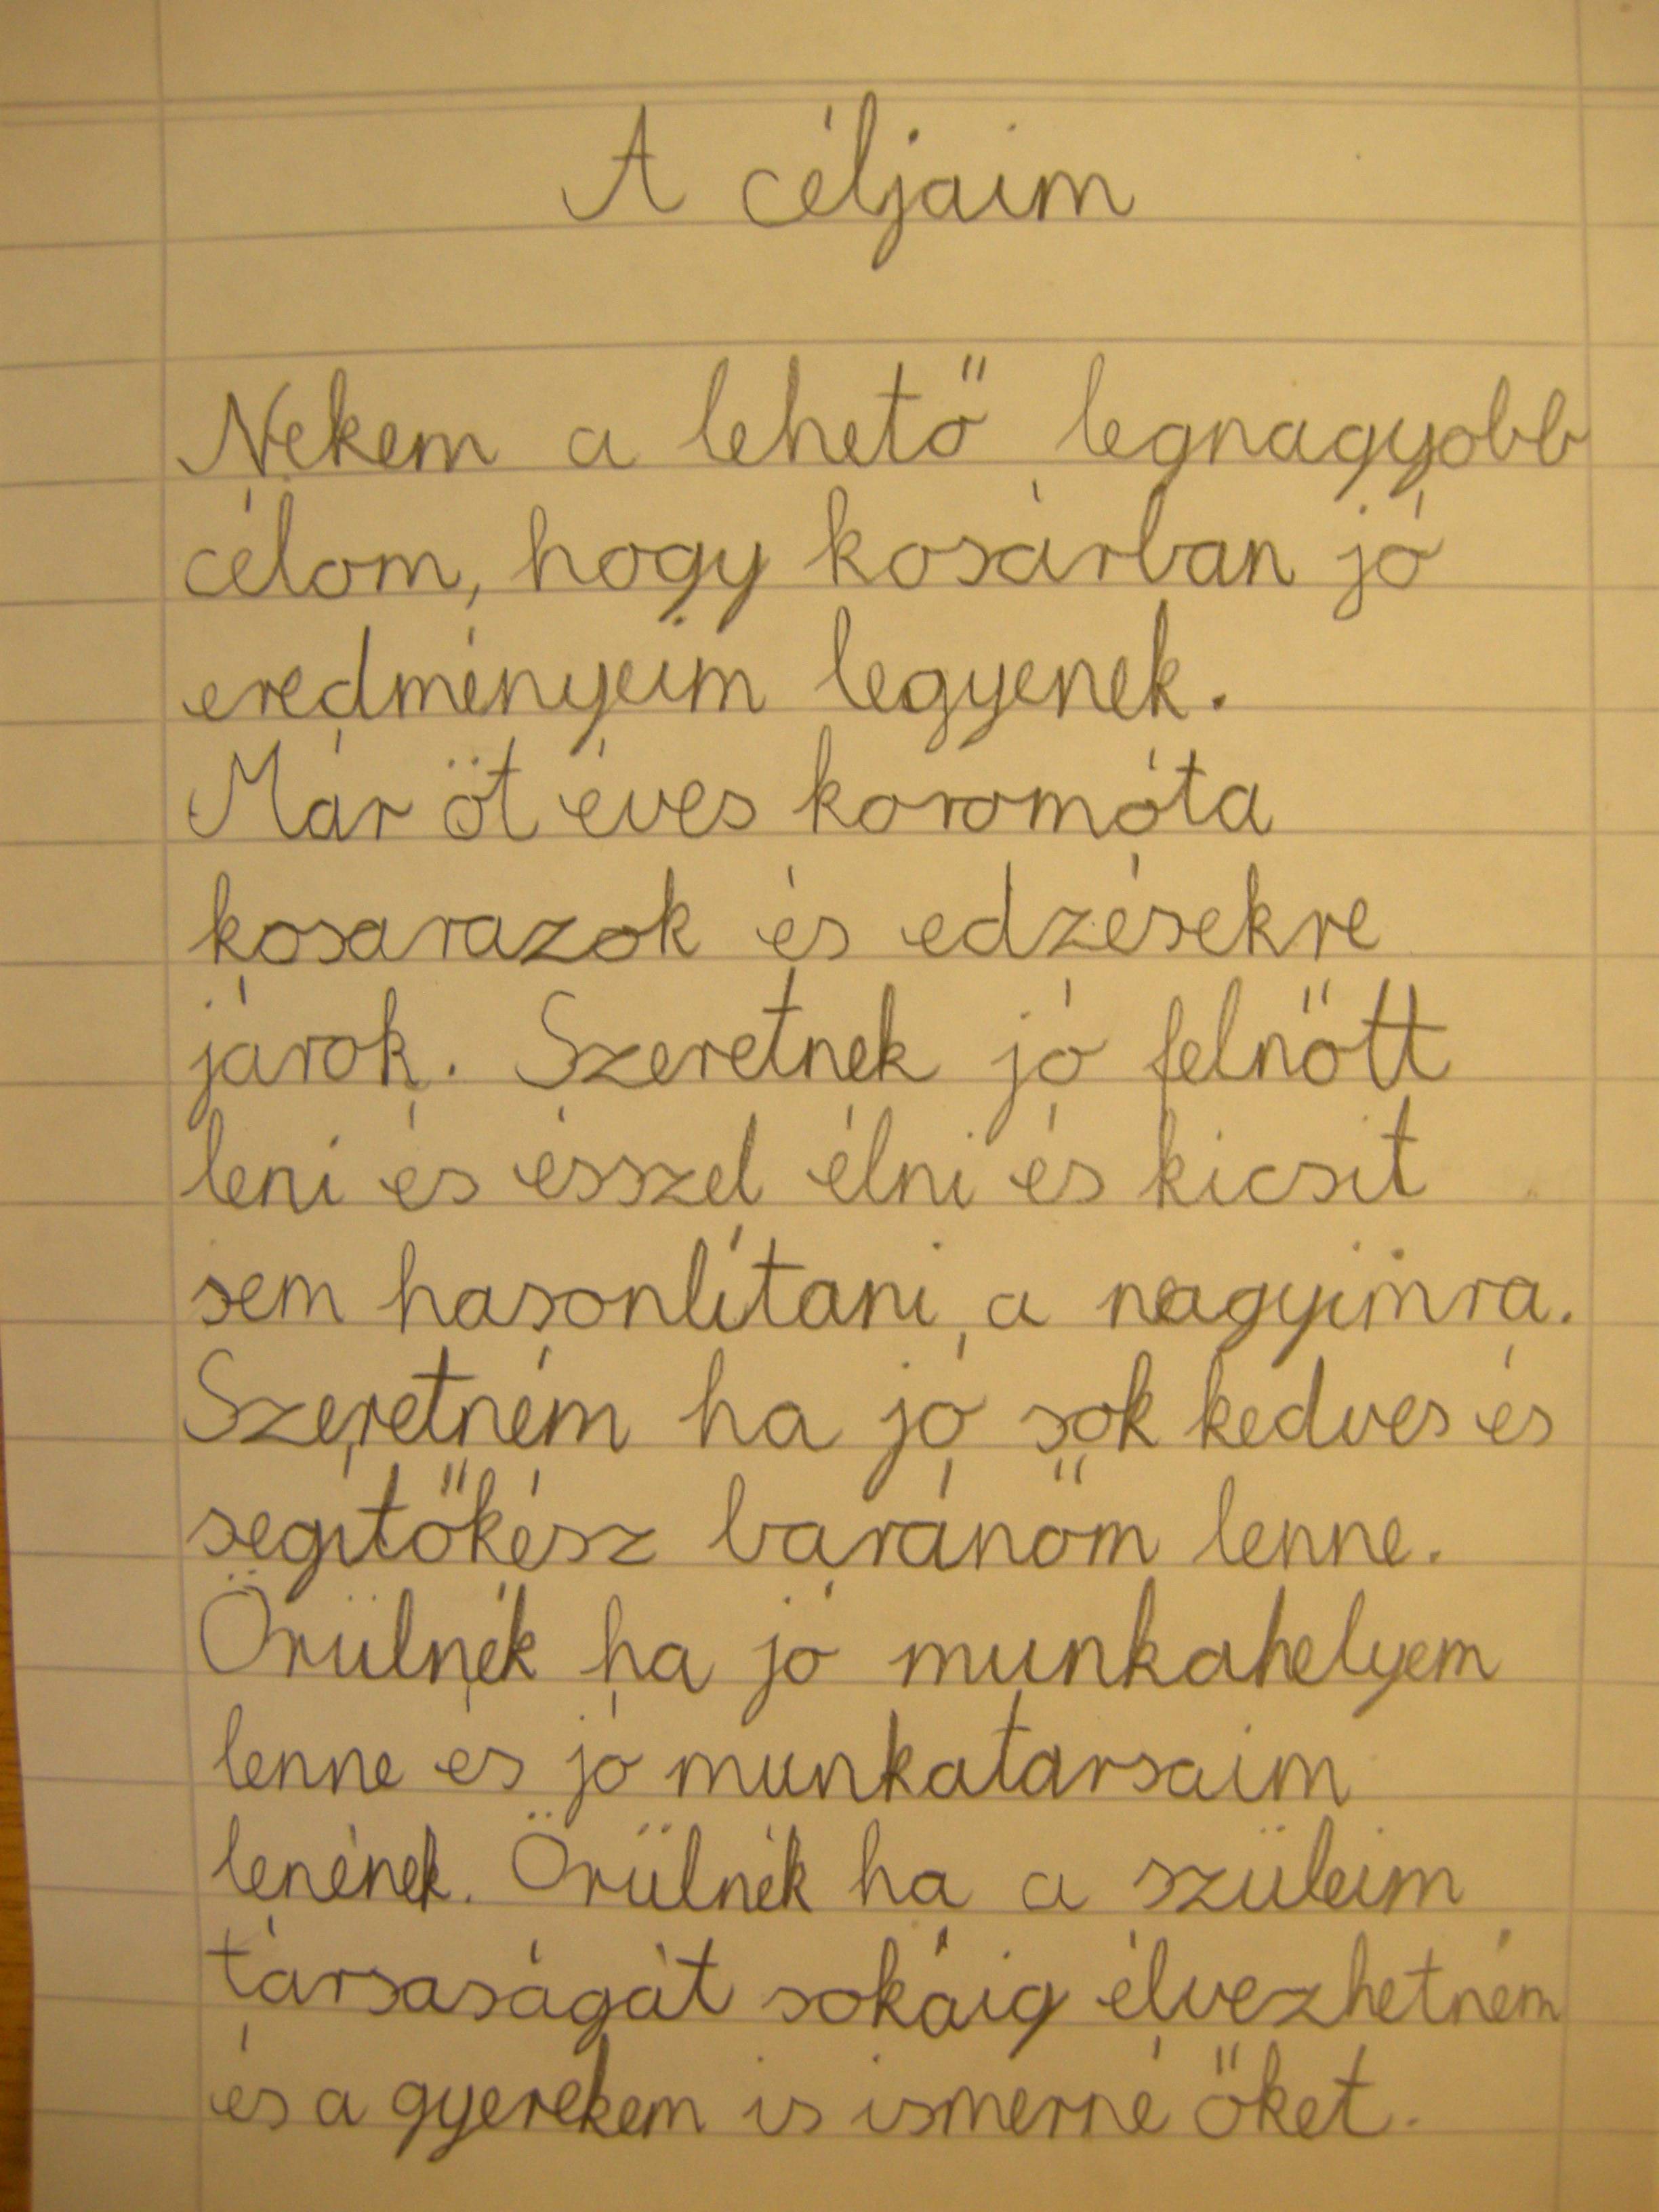 A céljaim
Nekem a lehető legnagyobb
célom, hogy kosárban jó
eredményeim legyenek.
Már öt éves korom óta
kosarazok és edzésekre
járok. Szeretnek jó felnőtt
leni és ésszel élni és kicsit
sem hasonlítani a nagyimra.
Szeretném ha jó sok kedves és
segítőkész baránőm lenne.
Örülnék ha jó munkahelyem
lenne és jó munkatarsaim
lenének. Örülnék ha a szüleim
társaságát sokáig élvezhetném
és a gyerekem is ismerné őket.